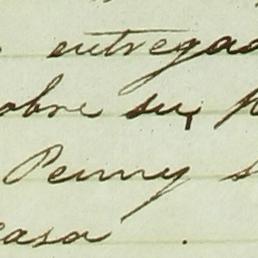 entregad
sobre su
Penny s
casa .